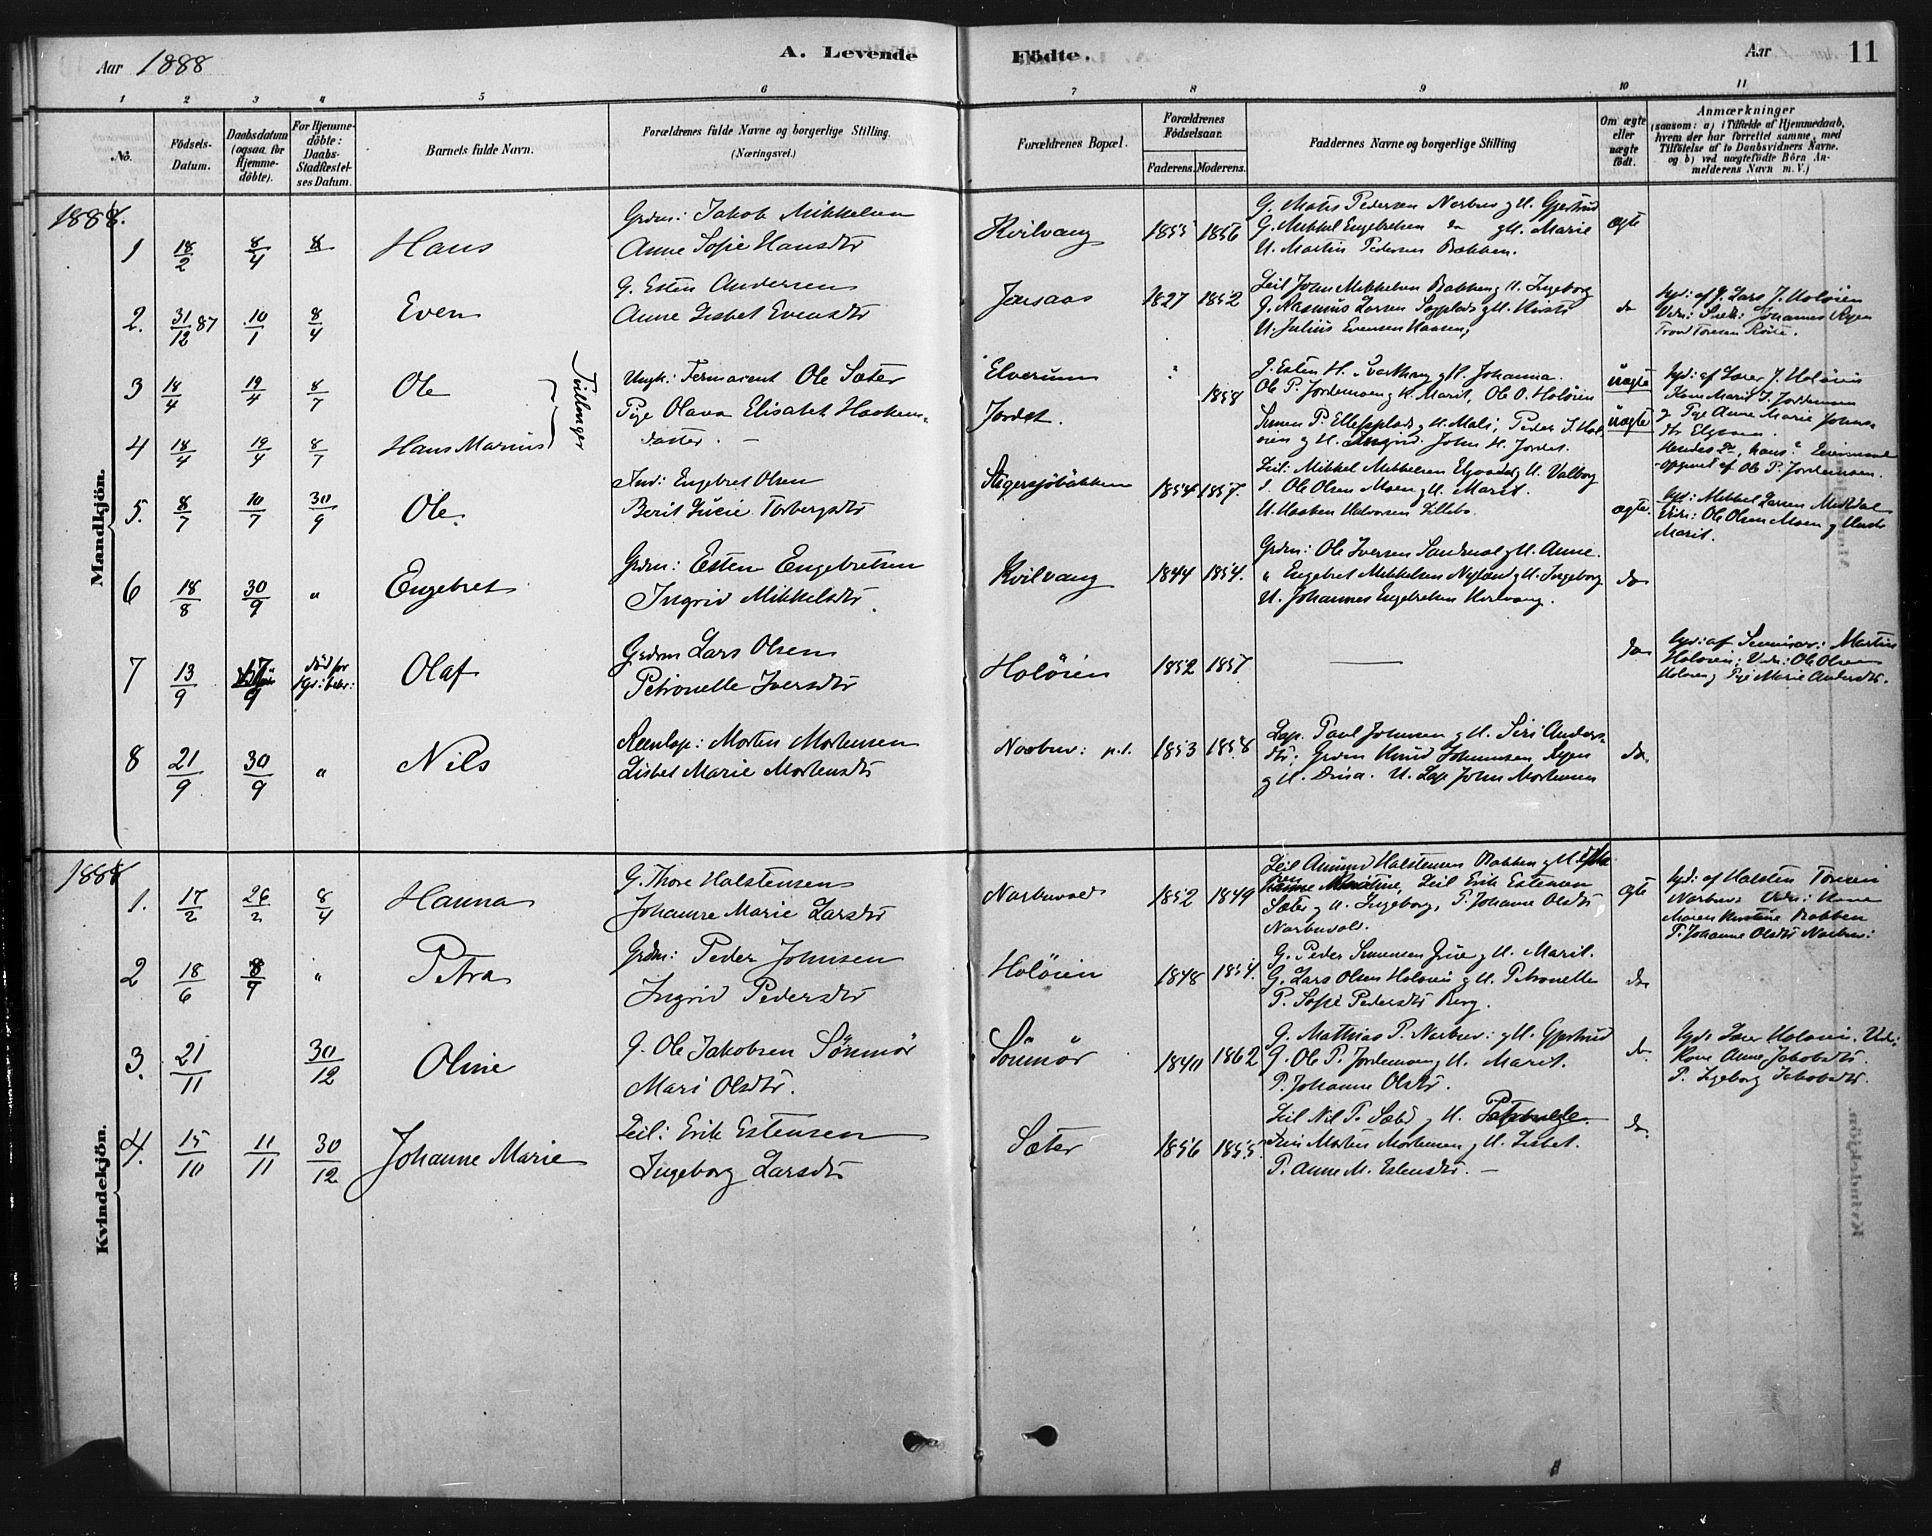 Aar 1888
A. Levende
Födte.
Aar
11
1
2
3
4
5
6
7
8
9
10
11
No.
Födsels-
Datum.
Daabsdatum
(ogsaa for
Hjemme-
döbte).
For Hjemme-
döbte:
Daabs-
Stadfæstel-
ses Datum.
Barnets fulde Navn.
Forældrenes fulde Navne og borgerlige Stilling.
(Næringsvei.)
Forældrenes Bopæl.
Forældrenes
Födselsaar.
Faderens.
Moderens.
Faddernes Navne og borgerlige Stilling
Om ægte
eller
uægte
födt.
Anmærkninger
(saasom: a) i Tilfælde af Hjemmedaab,
hvem der har forrettet samme, med
Tilföielse af to Daabsvidners Navne.
og b) ved uægtefödte Börn An-
melderens Navn m. V.)
Mandkjön.
1888.
1 18/2 8/4 Hans
Grdm: Jakob Mikkelsen
Anne Sofie Hansdtr
Kvilvang 1855 1856
G. Mats Pedersen Narbuv g H. Gjertrud
G. Mikkel Engebretsen do g H. Marie
U. Martin Pedersen Bakken.
ægte
2. 31/12 87 10/1 8/4 Even
G. Esten Andersen
Anne Lisbet Evensdtr
Jensaas 1827 1852
Leil John Mikkelsen Bakken g H. Ingeborg
G. Rasmus Larsen g H. Kirsti
U. Julius Evensen Haasen,
do
hjd: af G. Lars J. Holöien
Vidn: Johannes Ryen
Trond Toresen Röste.
3 18/4 19/4 8/7 Ole
Tvillinger
Ungk: Fermaient Ole Sæter
Elverum "
G. Esten H. g H. Johanna.
uægte
hjd: af Lærer J. Holöien
Pige Olava Elisabet Haakens-
Jordet. 1858
Ole P. Jordemoen g H. Marit, Ole O. Holöien
Kone Marit J. Jordemoen
4 18/4 19/4 8/7 Hans Marius
datter. —
Simen P. Ellefsplads g H. Mali; Peder J. Hol-
öien g H. Ingrid. John H. Jordet.
uægte
g Pige Anne Marie Johns-
dtr
opgivet af Ole P. Jordemoen.
5. 8/7 10/7 30/9 Ole.
Ind: Engebret Olsen
Berit Lucie Torbergsdtr
1854 1857.
Leil: Mikkel Mikkelsen g H. Valborg
Ole Olsen Moen g H. Marit.
U. Haaken Halvorsen Lillebo.
ægte.
hjd: Mikkel Larsen
Vidn: Ole Olsen Moen g Hustr
Marit.
6 18/8 30/9 " Engebret
Grdm: Esten Engebretsen
Ingrid Mikkelsdtr.
Kvilvang 1844 1854.
Grdm: Ole Iversen Sandmoe g H. Anne.
" Engebret Mikkelsen Nyland g H. Ingeborg
U. Johannes Engebretsen Kvilvang.
do
7 13/9 17/9 död før Olaf
Grdm Lars Olsen
Petronelle Iversdtr
Holöien 1852 1857
—
do
hjd: af Seminar: Martin
Holöien; Vidn: Ole Olsen
Holöien g Pige Marie Andersdtr.
8 21/9 30/9 " Nils
Reenlap: Morten Mortensen
Lisbet Marie Mortensdtr
Narbuv: p.t. 1853 1858
Lap. Paul Johnsen g H. Siri Anders-
dtr; Grdm Knud Johannesen Ryen
g H. Drina. U. Lap John Mortensen
do
Kvindekjön.
1888
1. 17/2 26/2 8/4 Hanna
G. Thore Halstensen
Johanne Marie Larsdtr
Narbuvold 1852 1849
Leil Amund Halstensen Bakken g H.
Leil Erik Estensen
Sæter g H. Ingeborg, P. Johanne Olsdtr
Narbuvold.
ægte
hjd: af Halsten Toresen
Narbuv: Vidn: Kone
Maren Kirstine Bakken
P. Johanne Olsdtr Narbuv:
2 18/6 8/7 " Petra
Grdm: Peder Johnsen
Ingrid Pedersdtr
Holöien 1848 1854.
G. Peder Simensen g H. Marit.
G. Lars Olsen Holöien g H. Petronelle
P. Sofie Pedersdtr Berg.
do
3. 21/11 30/12 Oline
G. Ole Jakobsen Sönmör
Mari Olsdtr.
Sönmör 1840 1862
G. Mathias P. Narbuv: g H. Gjertrud
G. Ole P. Jordemoen g H. Marit.
P. Johanne Olsdtr.
do.
hjd: Lærer Holöien. Vid:
Kone Anne Jakobsdtr.
P. Ingeborg Jakobsdtr.
4. 15/10 11/11 30/12 Johanne Marie
Leil: Erik Estensen
Ingeborg Larsdtr
Sæter 1856 1855
Leil Nil P. Sæter g H. Petronelle.
Morten Mortensen g H. Lisbet.
P. Anne M. Estensdtr. —
do.